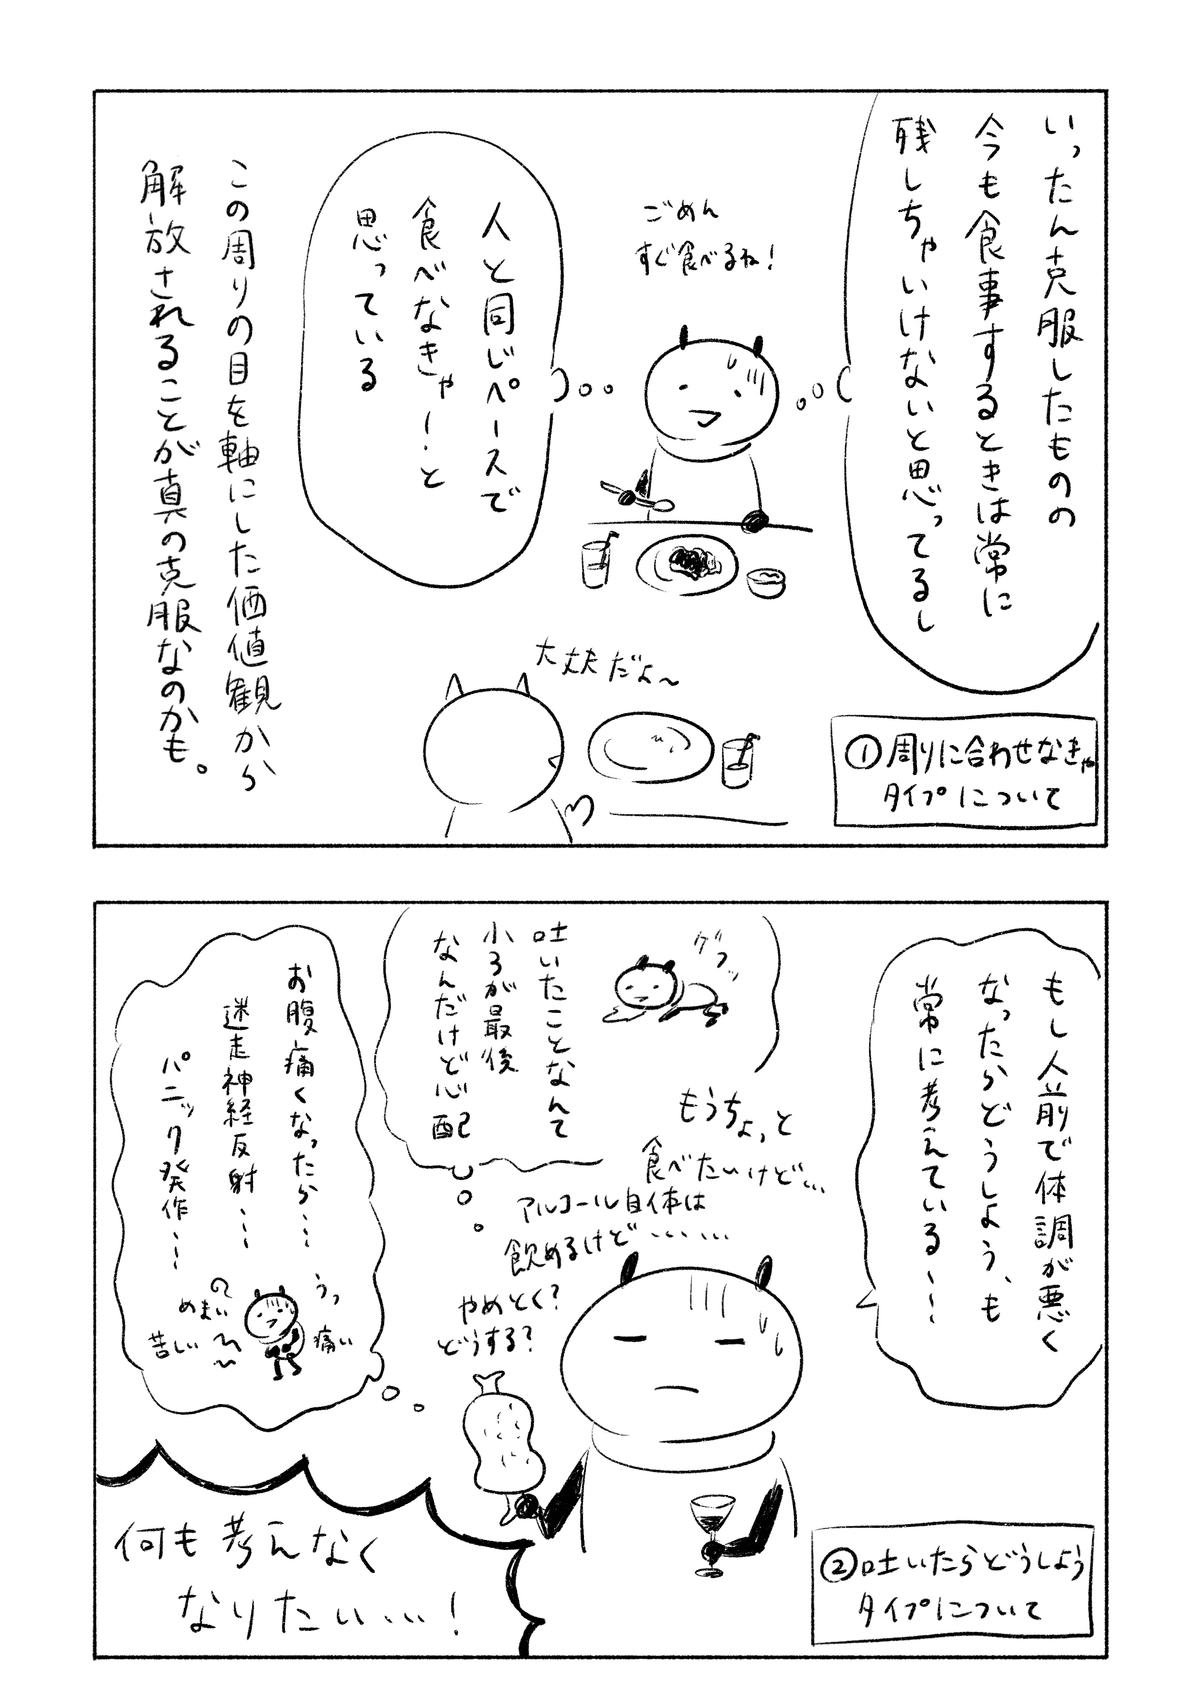 いったん克服したものの
今も食事するときは常に
残しちゃいけないと思ってるし
ごめん
すぐ食べるね!
人と同じペースで
食べなきゃーと
思っている
大丈夫だよ〜
この周りの目を軸にした価値観から
解放されることが真の克服なのかも。
①周りに合わせなきゃ
タイプについて
もし人前で体調が悪く
なったらどうしよう、も
常に考えている……
ゲフッ
吐いたことなんて
小3が最後
なんだけど心配
もうちょっと
食べたいけど…
アルコール自体は
飲めるけど……
やめとく?
どうする?
お腹痛くなったら……
迷走神経反射……
パニック発作……
うっ
痛い
めまい
苦しい
何も考えなく
なりたい…!
②吐いたらどうしよう
タイプについて